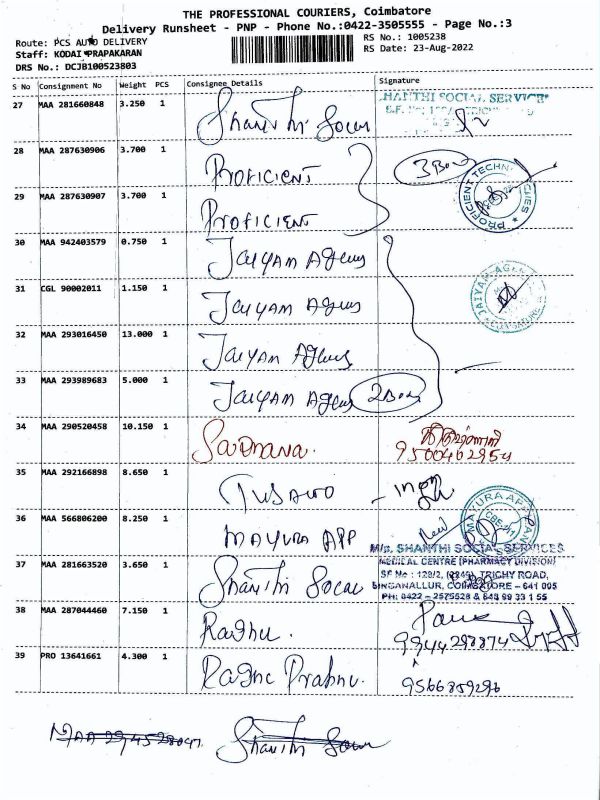 THE PROFESSIONAL COURIERS, Coimbatore
Delivery Runsheet - PNP - Phone No.:0422-3505555 - Page No.:3
Route: PCS AUTO DELIVERY
RS No.: 1005238
Staff: KODAI PRAPAKARAN
RS Date: 23-Aug-2022
DRS No.: DCJB100523803
S No Consignment No Weight PCS Consignee Details Signature
27 MAA 281660848 3.250 1 Shanthi Social
SHANTHI SOCIAL SERVICES
28 MAA 287630906 3.700 1 PROFICIENT 3 Box
PROFICIENT TECHNOLOGIES
29 MAA 287630907 3.700 1 PROFICIENT
30 MAA 942403579 0.750 1 JAIYAM Agency
31 CGL 90002011 1.150 1 JAIYAM Agency
JAIYAM AGENCY
32 MAA 293016450 13.000 1 JAIYAM Agency
33 MAA 293989683 5.000 1 JAIYAM Agency 2 Box
34 MAA 290520458 10.150 1 Sadhana.
9500462954
35 MAA 292166898 8.650 1
36 MAA 566806200 8.250 1 MAYURA APP
M/s. SHANTHI SOCIAL SERVICES
MEDICAL CENTRE (PHARMACY DIVISION)
37 MAA 281663520 3.650 1 Shanthi Social
SF No : 128/2, TRICHY ROAD,
SINGANALLUR, COIMBATORE - 641 005
38 MAA 287044460 7.150 1 Raghu.
9944298874
39 PRO 13641661 4.300 1 Raghu Prabhu.
9566859296
Shanthi Social